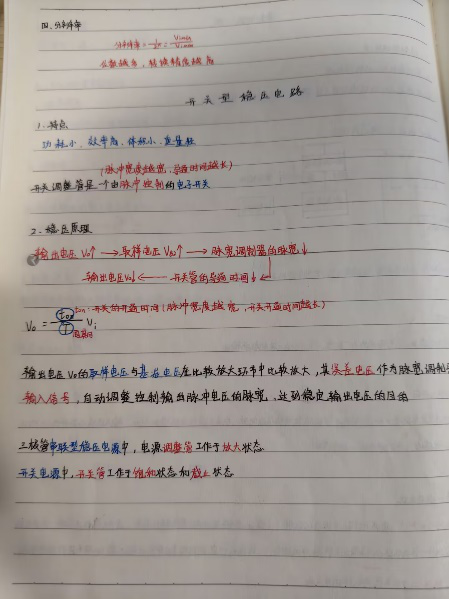 四、分辨率
分辨率 = 1/2ⁿ = Vimin/Vimax
位数越多，转换精度越高
开关型稳压电路
1、特点
功耗小、效率高、体积小、重量轻
(脉冲宽度越宽，导通时间越长)
开关调整管是一个由脉冲控制的电子开关
2、稳压原理
输出电压 Vo↑ → 取样电压 ↑ → 脉宽调制器的脉宽↓
输出电压Vo↓ ← 开关管的导通时间↓
ton：开关的开通时间(脉冲宽度越宽，开关开通时间越长)
Vo = ton/T Vi
T周期
输出电压Vo的取样电压与基准电压在比较放大环节中比较放大，其误差电压作为脉宽调制
输入信号，自动调整控制输出脉冲电压的脉宽，达到稳定输出电压的目的
串联型稳压电源中，电源调整管工作于放大状态
开关电源中，开关管工作于饱和状态和截止状态